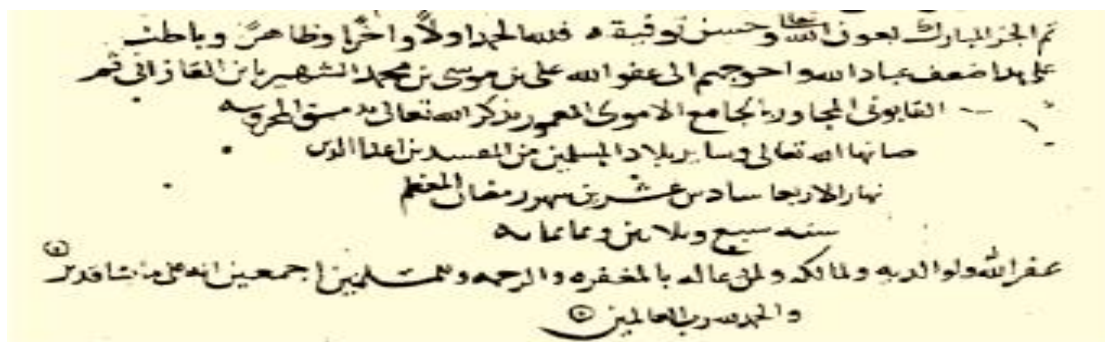 تم الجز المبارك بعون الله تعالى وحسن توفيقه فلله الحمد اولا واخرا وظاهرا وباطنا
على يد اضعف عباد الله واحوجهم الى عفو الله على بن موسى بن محمد الشهير بابن
القابونى المجاور بالجامع الاموى المعمور بذكر الله تعالى بدمشق المحروسه
صانها الله تعالى وساير بلاد المسلمين من المفسدين اعدا الدين
نهار الاربعا سادس عشرين شهر رمضان المعظم
سنه سبع وثلاثين وثمانمايه
غفر الله له ولوالديه ولمالكه ولمن دعا له بالمغفره والرحمه وللمسلمين اجمعين انه على ما يشا قدير
والحمد لله رب العالمين